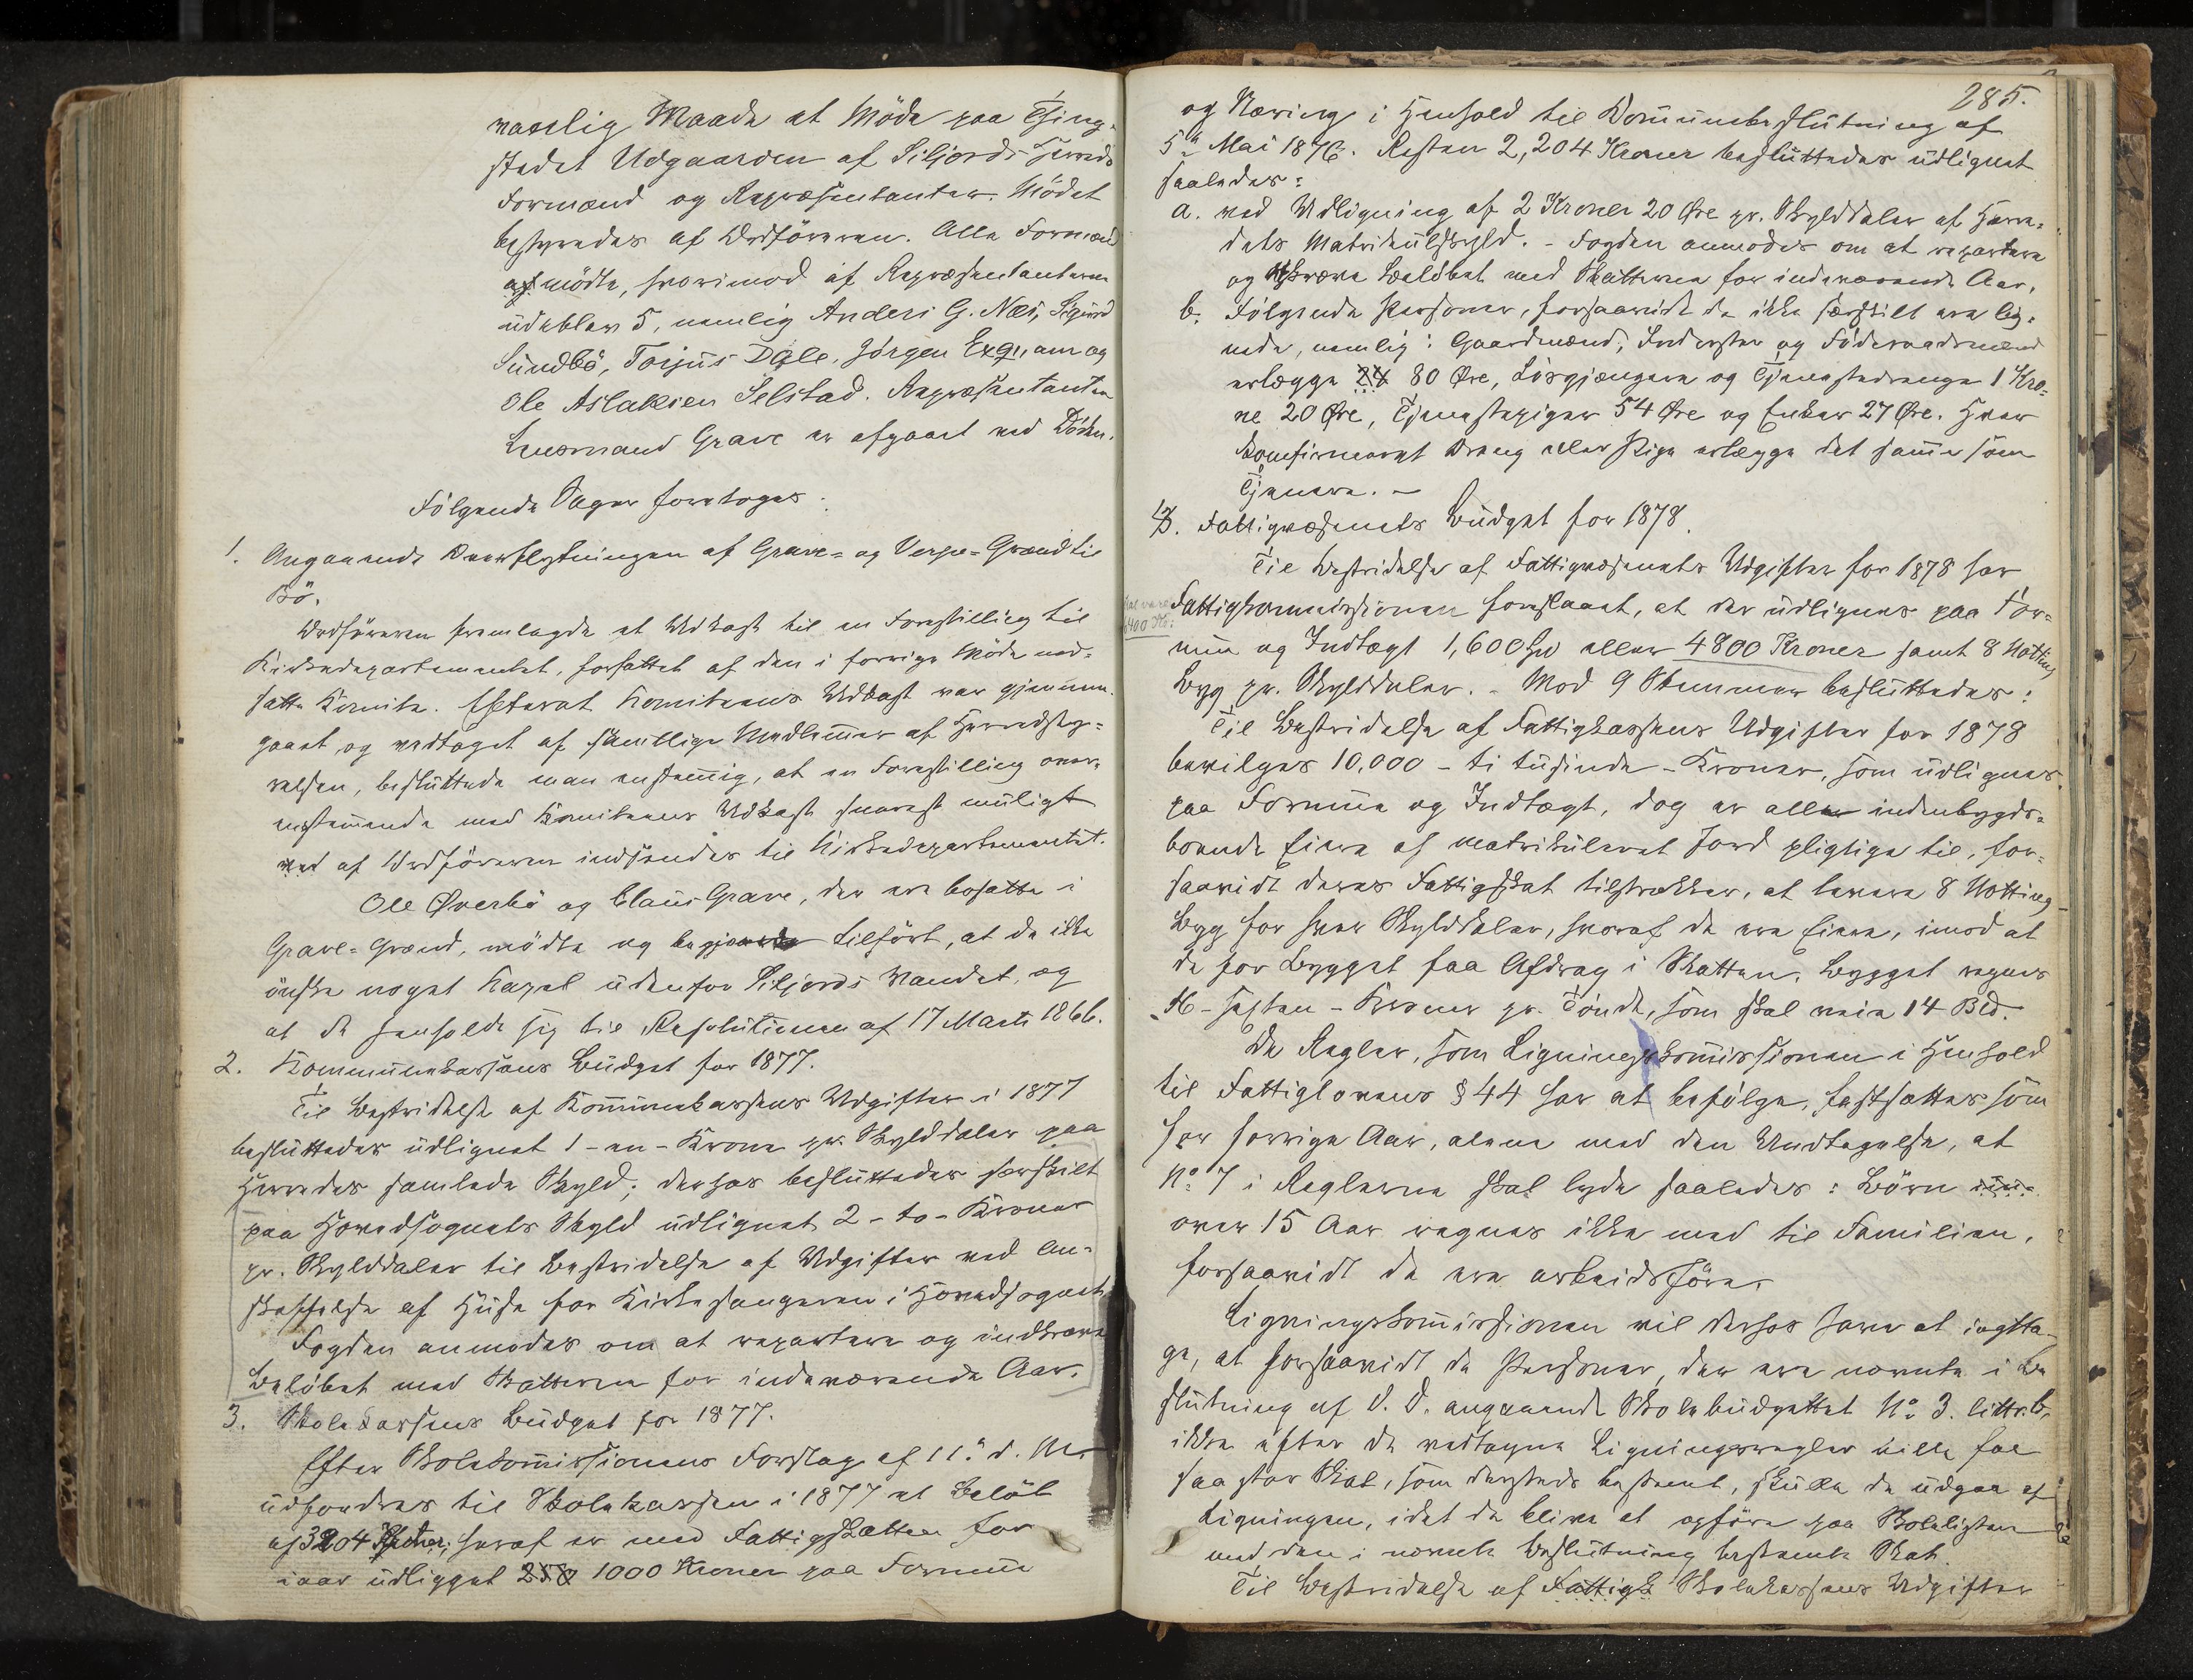 vanlig Maade at Möde paa Thing-
stedet Udgaarden af Siljords Herreds
Formænd og Repræsentanter. Mödet
bestyredes af Ordföreren. Alle Formænd
mödte, hvorimod af Repræsentanterne
udeblev 5, nemlig Anders G. Næs, Sigurd
Sundbö, Torjus Dale, Jörgen Exqvam og
Ole Aslaksen Selstad. Repræsentanten
Grave er afgaaet ved Döden.
Fölgende Sager foretoges.
1. Angaaende Overflytningen af Grave- og Verpe-Grænd til
Bö.
Ordföreren fremlagde et Udkast til en Forestilling til
Kirkedepartementet, forfattet af den i forrige Möde ned-
satte Komite. Efterat Komiteens Udkast var gjennem-
gaaet og vedtaget af samtlige Medlemmer af Herredsty-
relsen, besluttede man enstemmig, at en Forestilling over-
ensstemmende med Komiteens Udkast snarest muligt
ved af Ordföreren indsendes til Kirkedepartementet.
Ole Øverbö og Claus Grave, der ere bosatte i
Grave-Grænd, mödte og begjærede tilfört, at de ikke
önske noget Kapel udenfor Siljords Vandet, og
at de henholde sig til Resolutionen af 17 Marts 1866.
2. Kommunekassens Budget for 1877.
Til Bestridelse af Kommunekassens Udgifter i 1877
besluttedes udlignet 1 - en - Krone pr. Skylddaler paa
Herredets samlede Skyld; derhos besluttedes særskilt
paa Hovedsognets Skyld udlignet 2 - to - Kroner
pr. Skylddaler til Bestridelse af Udgifter ved An-
skaffelse af Huse for Kirkesangeren i Hovedsognet.
Fogden anmodes om at repartere og indkræve
Belöbet med Skatterne for indeværende Aar.
3. Skolekassens Budget for 1877.
Efter Skolekommissionens Forslag af 11te d. M.
udfordres til Skolekassen i 1877 et Belöb
af 3204 Kroner; heraf er med Fattigskatten for
iaar udlignet 250 1000 Kroner paa Formue
285.
og Næring i Henhold til Kommunebeslutning af
5te Mai 1876. Resten 2,204 Kroner besluttedes udlignet
saaledes:
a. ved Udligning af 2 Kroner 20 Øre pr. Skylddaler af Herre-
dets Matrikulskyld. - Fogden anmodes om at repartere
og opkræve Belöbet med Skatterne for indeværende Aar.
b. Fölgende Personer, forsaavidt de ikke særskilt ere lig-
nede, nemlig: Gaardmænd, Inderster og Föderaadsmænd
erlægge 24 80 Øre, Lösgjængere og Tjenestedrenge 1 Kro-
ne 20 Øre, Tjenestepiger 54 Øre og Enker 27 Øre. Hver
konfirmeret Dreng eller Pige erlægge det samme som
Tjenere. -
4. Fattigvæsenets Budget for 1878.
Til Bestridelse af Fattigvæsenets Udgifter for 1878 har
Skal være
6400 Kr:
Fattigkommissionen foreslaaet, at der udlignes paa For-
mue og Indtægt 1,600 Spd eller 4800 Kroner samt 8 Notting
Byg pr. Skylddaler. - Mod 9 Stemmer besluttedes:
Til Bestridelse af Fattigkassens Udgifter for 1878
bevilges 10,000 - ti tusinde - Kroner, som udlignes
paa Formue og Indtægt, dog er alle indenbygds-
boende Eiere af matrikuleret Jord pligtige til, for-
saavidt deres Fattigskat tilstrækker, at levere 8 Notting
Byg for hver Skylddaler, hvoraf de ere Eiere, imod at
de for Bygget faa Afdrag i Skatten. Bygget regnes
16 - sexten - Kroner pr. Tönde, som skal veie 14 Bld.
De Regler, som Ligningskommissionen i Henhold
til Fattiglovens § 44 har at befölge, fastsattes som
for forrige Aar, alene med den Undtagelse, at
No 7 i Reglerne skal lyde saaledes: Börn
over 15 Aar regnes ikke med til Familien,
forsaavidt de ere arbeidsföre.
Ligningskommissionen vil derhos have at iagtta-
ge, at forsaavidt de Personer, der ere nævnte i Be
slutning af D. D. angaaende Skolebudgettet No 3. littr. b.
ikke efter de vedtagne Ligningsregler ville faa
saa stor Skat, som dersteds bestemt, skulle de udgaa af
Ligningen, idet de blive at opföre paa Skolelisten
med den i nævnte Beslutning bestemte Skat.
Til Bestridelse af Fattigk Skolekassens Udgifter